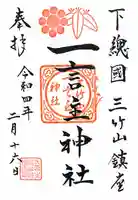 下總國三竹山鎮座
一言主神社
奉拝
令和四年
二月十六日